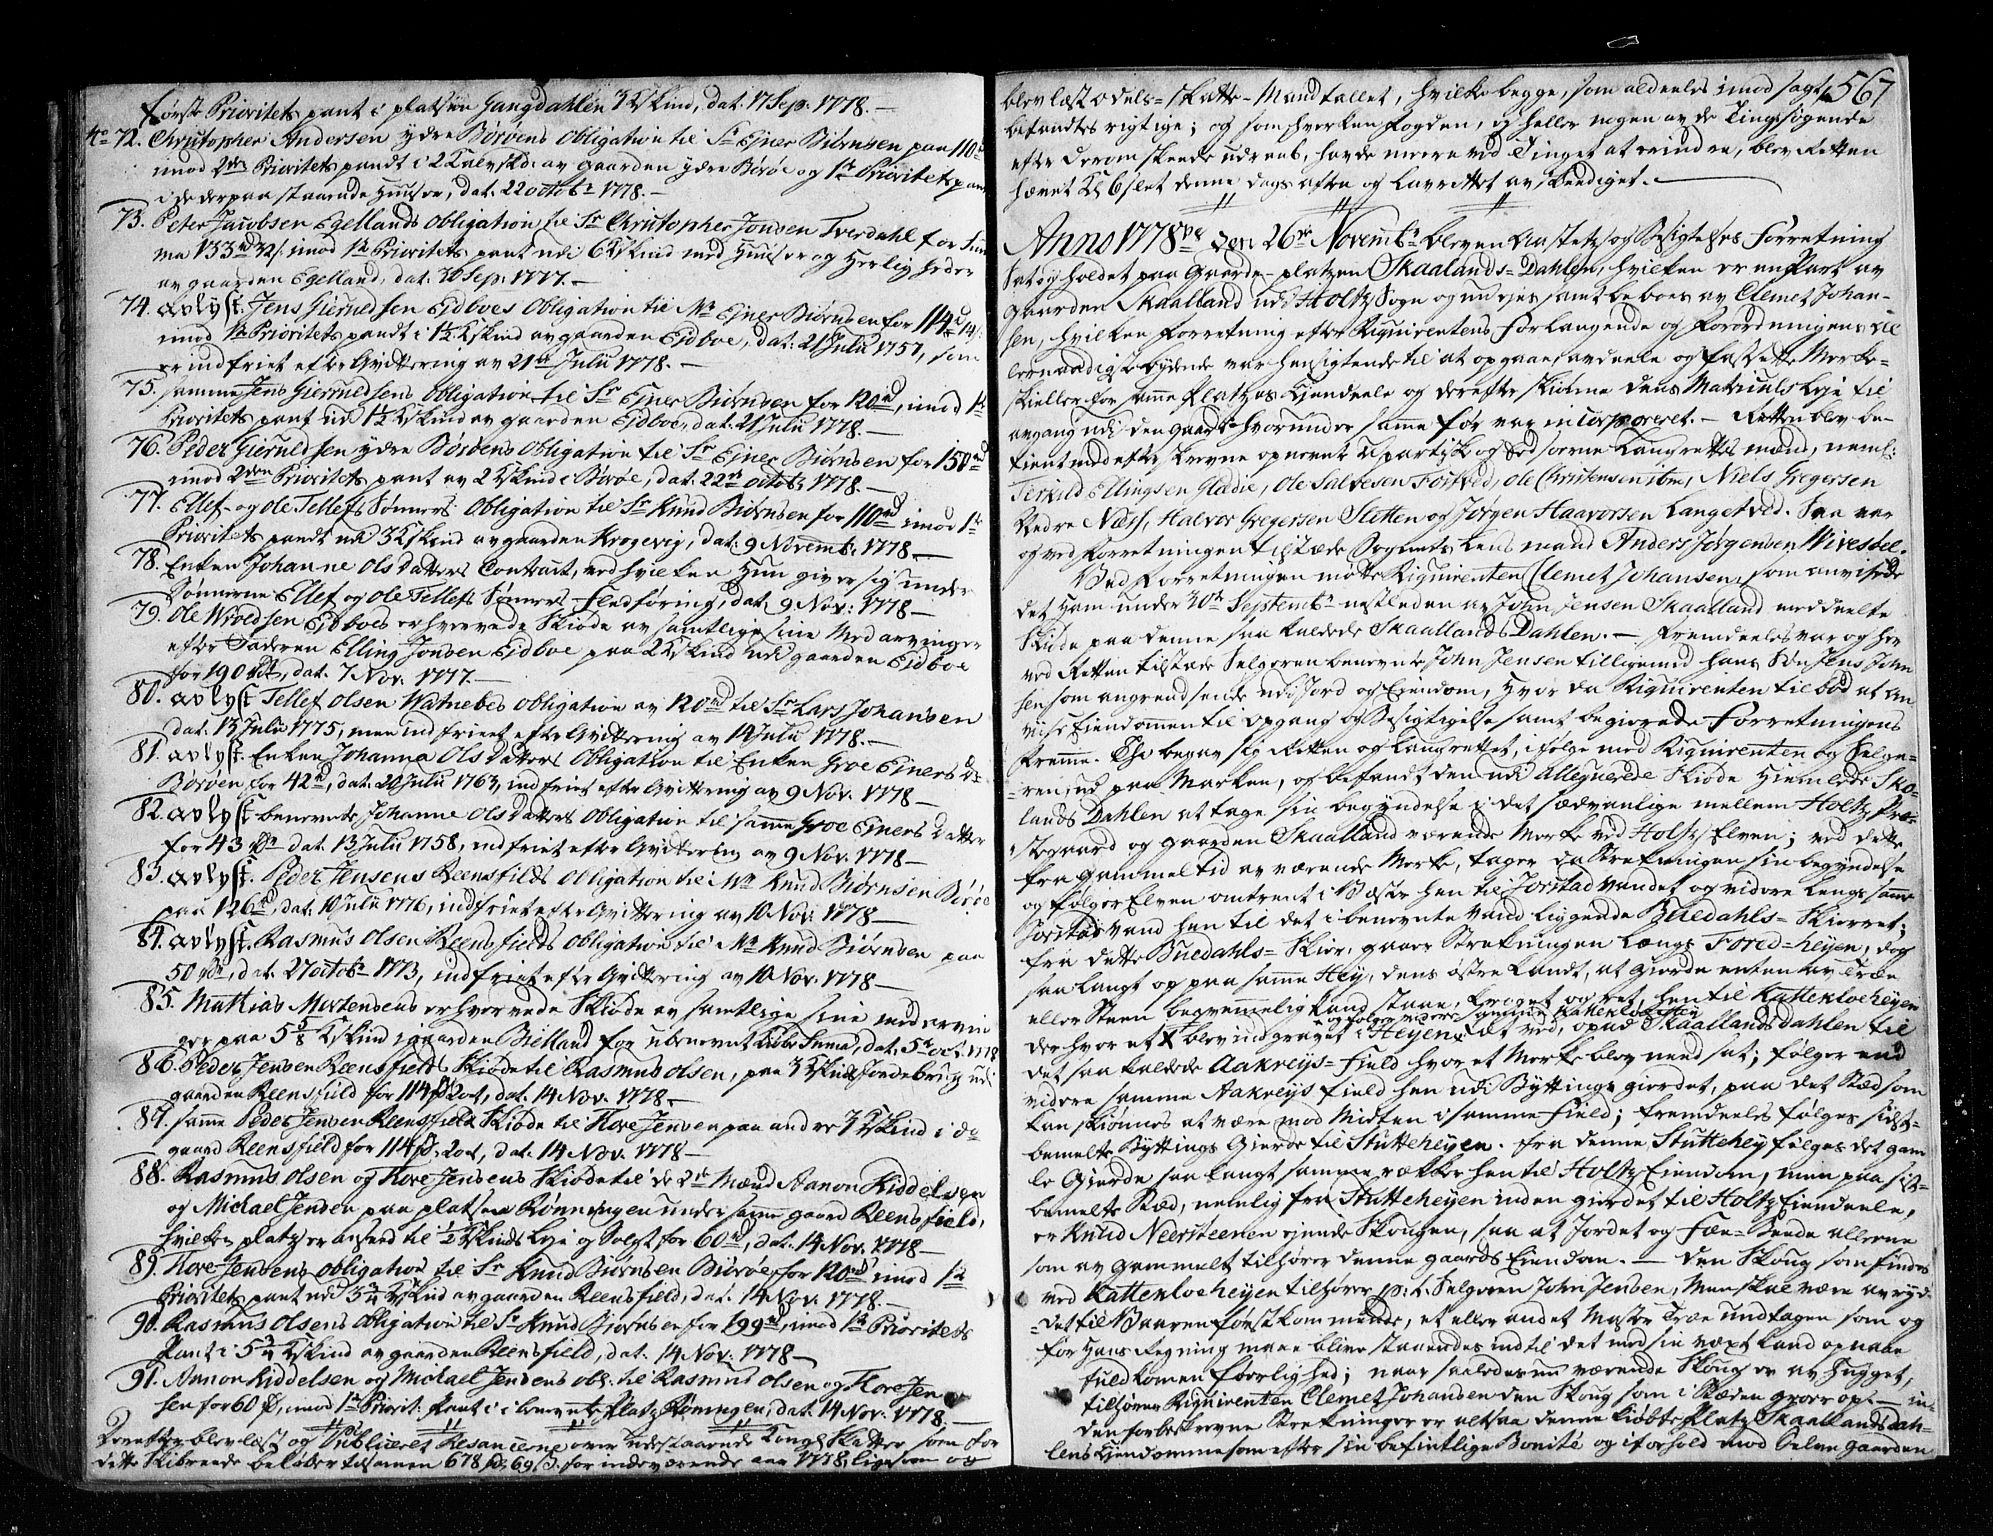 første Prioritets pant i platsen Gangdahlen 3 K/skind, dat. 17 Sep: 1778.—
No 72. Christopher Andersen ydre Børøens Obligation til Sr Ejner Biørnsen paa 110 rd
imod 2den Prioritets pandt i 2 Kalvskd: av gaarden ydre Børøe og 1te Prioritets pant
i de derpaa staaende Huuser, dat. 22 octobr 1778.—
73. Peter Jacobsen Egellands Obligation til Sr Christopher Jonsen Tverdahl for Sum
ma 133 rd 32 s. imod 1te Prioritets pant udi 6 K/skind med Huuser og Herligheder
av gaarden Egelland, dat. 30 Sep. 1777.—
74. avlyst. Jens Gierulfsen Eidboes Obligation til Mr Ejner Biørnsen for 114 rd 14 s.
imod 1te Prioritets pandt i 1½ K/skind av gaarden Eidboe, dat: 21 Julii 1757, som
er indfriet efter Qvittering av 21de Julii 1778.—
75. samme Jens Gierulfsens Obligation til Sr Ejner Biørnsen for 120 rd, imod 1te
Prioritets pant udi 1½ K/skind av gaarden Eidboe, dat. 21 Julii 1778.—
76. Peder Gierulfsen ydre Børøens Obligation til Sr Ejner Biørnsen for 150 rd
imod 2den Prioritets pant av 2 K/skind i Børøe, dat. 22de octobr. 1778.—
77. Ellef og Ole Tellefs Sønners Obligation til Sr Knud Biørnsen for 110 rd imod 1te
Prioritets pandt udi 3 K/skind av gaarden Krogevig, dat. 9 Novembr: 1778.—
78. Enken Johanne Olsdatters Contract, ved hvilken Hun giver sig under
Sønnerne Ellef og Ole Tellefs Sønners Fledføring, dat. 9 Nov: 1778—
79. Ole Wroldsen Eidboes erhvervede Skiøde av samtlige sine Med arvinger
efter Faderen Elling Jonsen Eidboe paa 2 K/skind udi gaarden Eidboe
for 190 rd, dat. 7 Nov. 1777.—
80. avlyst Tellef Olsen Watnebes obligation av 120 rd til Sr Lars Johansen
dat. 13 Julii 1775, men indfriet efter Qvittering av 14 Julii 1778.—
81. avlyst. Enken Johanna Olsdatters Obligation til Enken Groe Ejners D:
Børøen for 42 rd, dat. 20 Julii 1763, indfriet efter Qvittering av 9 Nov. 1778—
82. avlyst benevnte Johanne Olsdatters Obligation til samme Groe Ejners Datter
for 43 rd dat. 13 Julii 1758, indfriet efter Qvittering av 9 Nov. 1778—
83. avlyst. Peder Jensens Reensfields Obligation til Mr Knud Biørnsen Børøe
paa 126 rd, dat. 10 Julii 1776, indfriet efter Qvittering av 10 Nov. 1778—
84. avlyst. Rasmus Olsen Reensfields Obligation til Mr Knud Biørnsen paa
50 rd, dat. 27 octobr 1773, indfriet efter Qvittering av 10 Nov. 1778—
85. Mathias Mortensens erhvervede Skiøde av samtlige sine medarvin
ger paa 5⅝ K/skind i gaarden Bielland for ubenevnt Kiøbe Suma, dat. 5te oct. 1778
86. Peder Jensen Reensfields Skiøde til Rasmus Olsen, paa 3 K/skinds fordebrug udi
gaarden Reensfield for 114 rd 2 ort, dat. 14 Nov. 1778.—
87. samme Peder Jensen Reensfields Skiøde til Thore Jensen paa andre 3 K/skind i do
gaard Reensfield for 114 rd, 2 ort, dat. 14 Nov. 1778—
88. Rasmus Olsen og Thore Jensens Skiøde til de 2de Mænd Aanon Kiddelsen
og Michael Jensen paa platsen Rønningen under samme gaard Reensfield,
hvilken platz er anførd til ½ K/skinds Leje og Solgt for 60 rd, dat. 14 Nov. 1778—
89. Thore Jensens obligation til Sr Knud Biørnsen Børøe for 120 rd imod 1te
Prioritets pant udi 5¾ K/skind av gaarden Reensfield, dat. 14 Nov. 1778.—
90. Rasmus Olsens obligation til Sr Knud Biørnsen for 199 rd, imod 1te Prioritets
Pant i 5¾ K/skind av gaarden Reensfield, dat. 14 Nov: 1778—
91. Aanon Kiddelsen og Michael Jensens obl: til Rasmus Olsen og Thore Jen
sen for 60 rd, imod 1te Priorit. Pant i benevnte Platz Rønningen, dat. 14 Nov. 1778.—
Derefter blev læst og Publiceret Resancerne over udestaaende Kongl. Skatter som for
dette Skibrede beløber tilsamen 678 rd 69 s. for indeværende aar 1778, ligesom og
567
blev læst odels-skatte-Mandtallet, hvilke begge, som aldeeles imod sagt
befandtes rigtige; og som hverken Fogden, ey heller nogen av de Tingsøgende
efter derom skeede udraab, havde meere ved Tinget at erindre, blev Retten
hævet Kl 6 slet denne dags aften og Lavrettet avskeediget.—
Anno 1778 den 26de Novembr bleven Aastets og Besigtelses Forretning
Sat og holdet paa Gaarde-platzen Skaalands-Dahlen, hvilken er en Part av
gaarden Skaalland udi Holtz Sogn og nu ejes samt beboes av Clemet Johan-
sen, hvilken Forretning efter Rigvirentens Forlangende og Forordningens al
lernaadigst bydende var hensigtende til at opgaae, avdeele og fastsette Merke-
skieller for samme Platzes Ejendeele og derefter skiønne dens Matriculs Leje til
avgang udi den gaard hvorunder samme før var incorporeret.— Retten blev be-
tient med efterskrevne opnevnte Upartiske og Eedsoerne Laugrettesmænd, neml:
Terkild Ellingsen Glædie, Ole Salvesen Fosstved, Ole Christensen ibm, Niels Gregersen
Nedre Næss, Halvor Gregersen Sletten og Jørgen Haavorsen Langetved. Saa var
og ved Forretningen tilstæde Sognets Lensmand Anders Jørgensen Wivestøl.
Ved Forretningen mødte Rigvirenten Clemet Johansen, som anviste
det Ham under 30te Septembr nestleden av John Jensen Skaalland meddeelte
Skiøde paa denne saa kaldede Skaallands Dahlen.— Fremdeeles var og her
ved Retten tilstæde Selgeren benevnte John Jensen tilligemed hans Søn Jens John
sen som angrendsende udi Jord og Ejendom, Hvor da Rigvirenten tilbød at an
viise Eiendommen til opgang og Besigtigelse samt begierede Forretningens
Fremme. Thi begav sig Retten og Laugrettet, i følge med Rigvirenten og Selge-
ren, ud paa Marken, og befandt den udi allegerede Skiøde Hiemlede Ska-
lands Dahlen at tage sin begyndelse i det sædvanlige mellem Holtz Præ-
stegaard og gaarden Skaalland værende Merke ved Holtz Elven; ved dette
fra gammel tid av værende Merke, tager da Strekningen sin begyndelse
og følger Elven omtrent i Vester hen til Jorstad vandet og videre Lengs samme
Jorstad vand hen til det i benevnte vand liggende Buedahls-Skierret;
fra dette Buedahls-Skier, gaaer Strekningen Længs Fored-heyen, dog
saa langt op paa samme Hey, dens østre Kandt, at gierde enten av Træe
eller Steen begvemmelig kand staae, kroget og ret, hen til Kattenloeheyen
og følger videre samme Kattenloeheyen
der hvor et X blev indgravet i Heyen, tæt ved, op ad Skaallandsdahlen til
det saa kaldede Aakreijs-Field hvor et Merke blev need sat; følger end
videre samme Aakreijs Field hen udi Byttings giordet, paa det Stæd som
kan skiønnes at være mod Midten i samme Field; fremdeeles følges sidst-
bemelte Byttings Gierde til Stutteheyen. Fra denne Stuttehey følges det gam
le Gierde saa langt samme rækker hen til Holtz Eiendom, men paa sist-
bemelte Stæd, nemlig fra Stutteheyen inden gierdet til Holtz Eiendeele,
er Knud Neersteenen ejende Skougen, saa at Jordet og Fæe-Beede allene
som av gammelt tilhører denne gaards Eiendom.— Den Skoug som findes
ved Kattenloeheyen tilhører p: t: Selgeren John Jensen, Men skal være avryd-
det til Vaaren først kommende, et eller andet Maste Træe undtagen som og
for Hans Regning maae blive staaendes indtil det med sin vext kand opnaae
fuldkomen foerlighed; naar saaledes nu værende Skoug er av hugget,
tilhører Rigvirenten Clemet Johansen den Skoug som i Stæden groer op.— in-
den forbeskrevne Strekninger er altsaa denne kiøbte Platz Skaallandsdah-
lens Ejendomme som efter sin befintlige Bonité og i forhold mod Selve gaarden